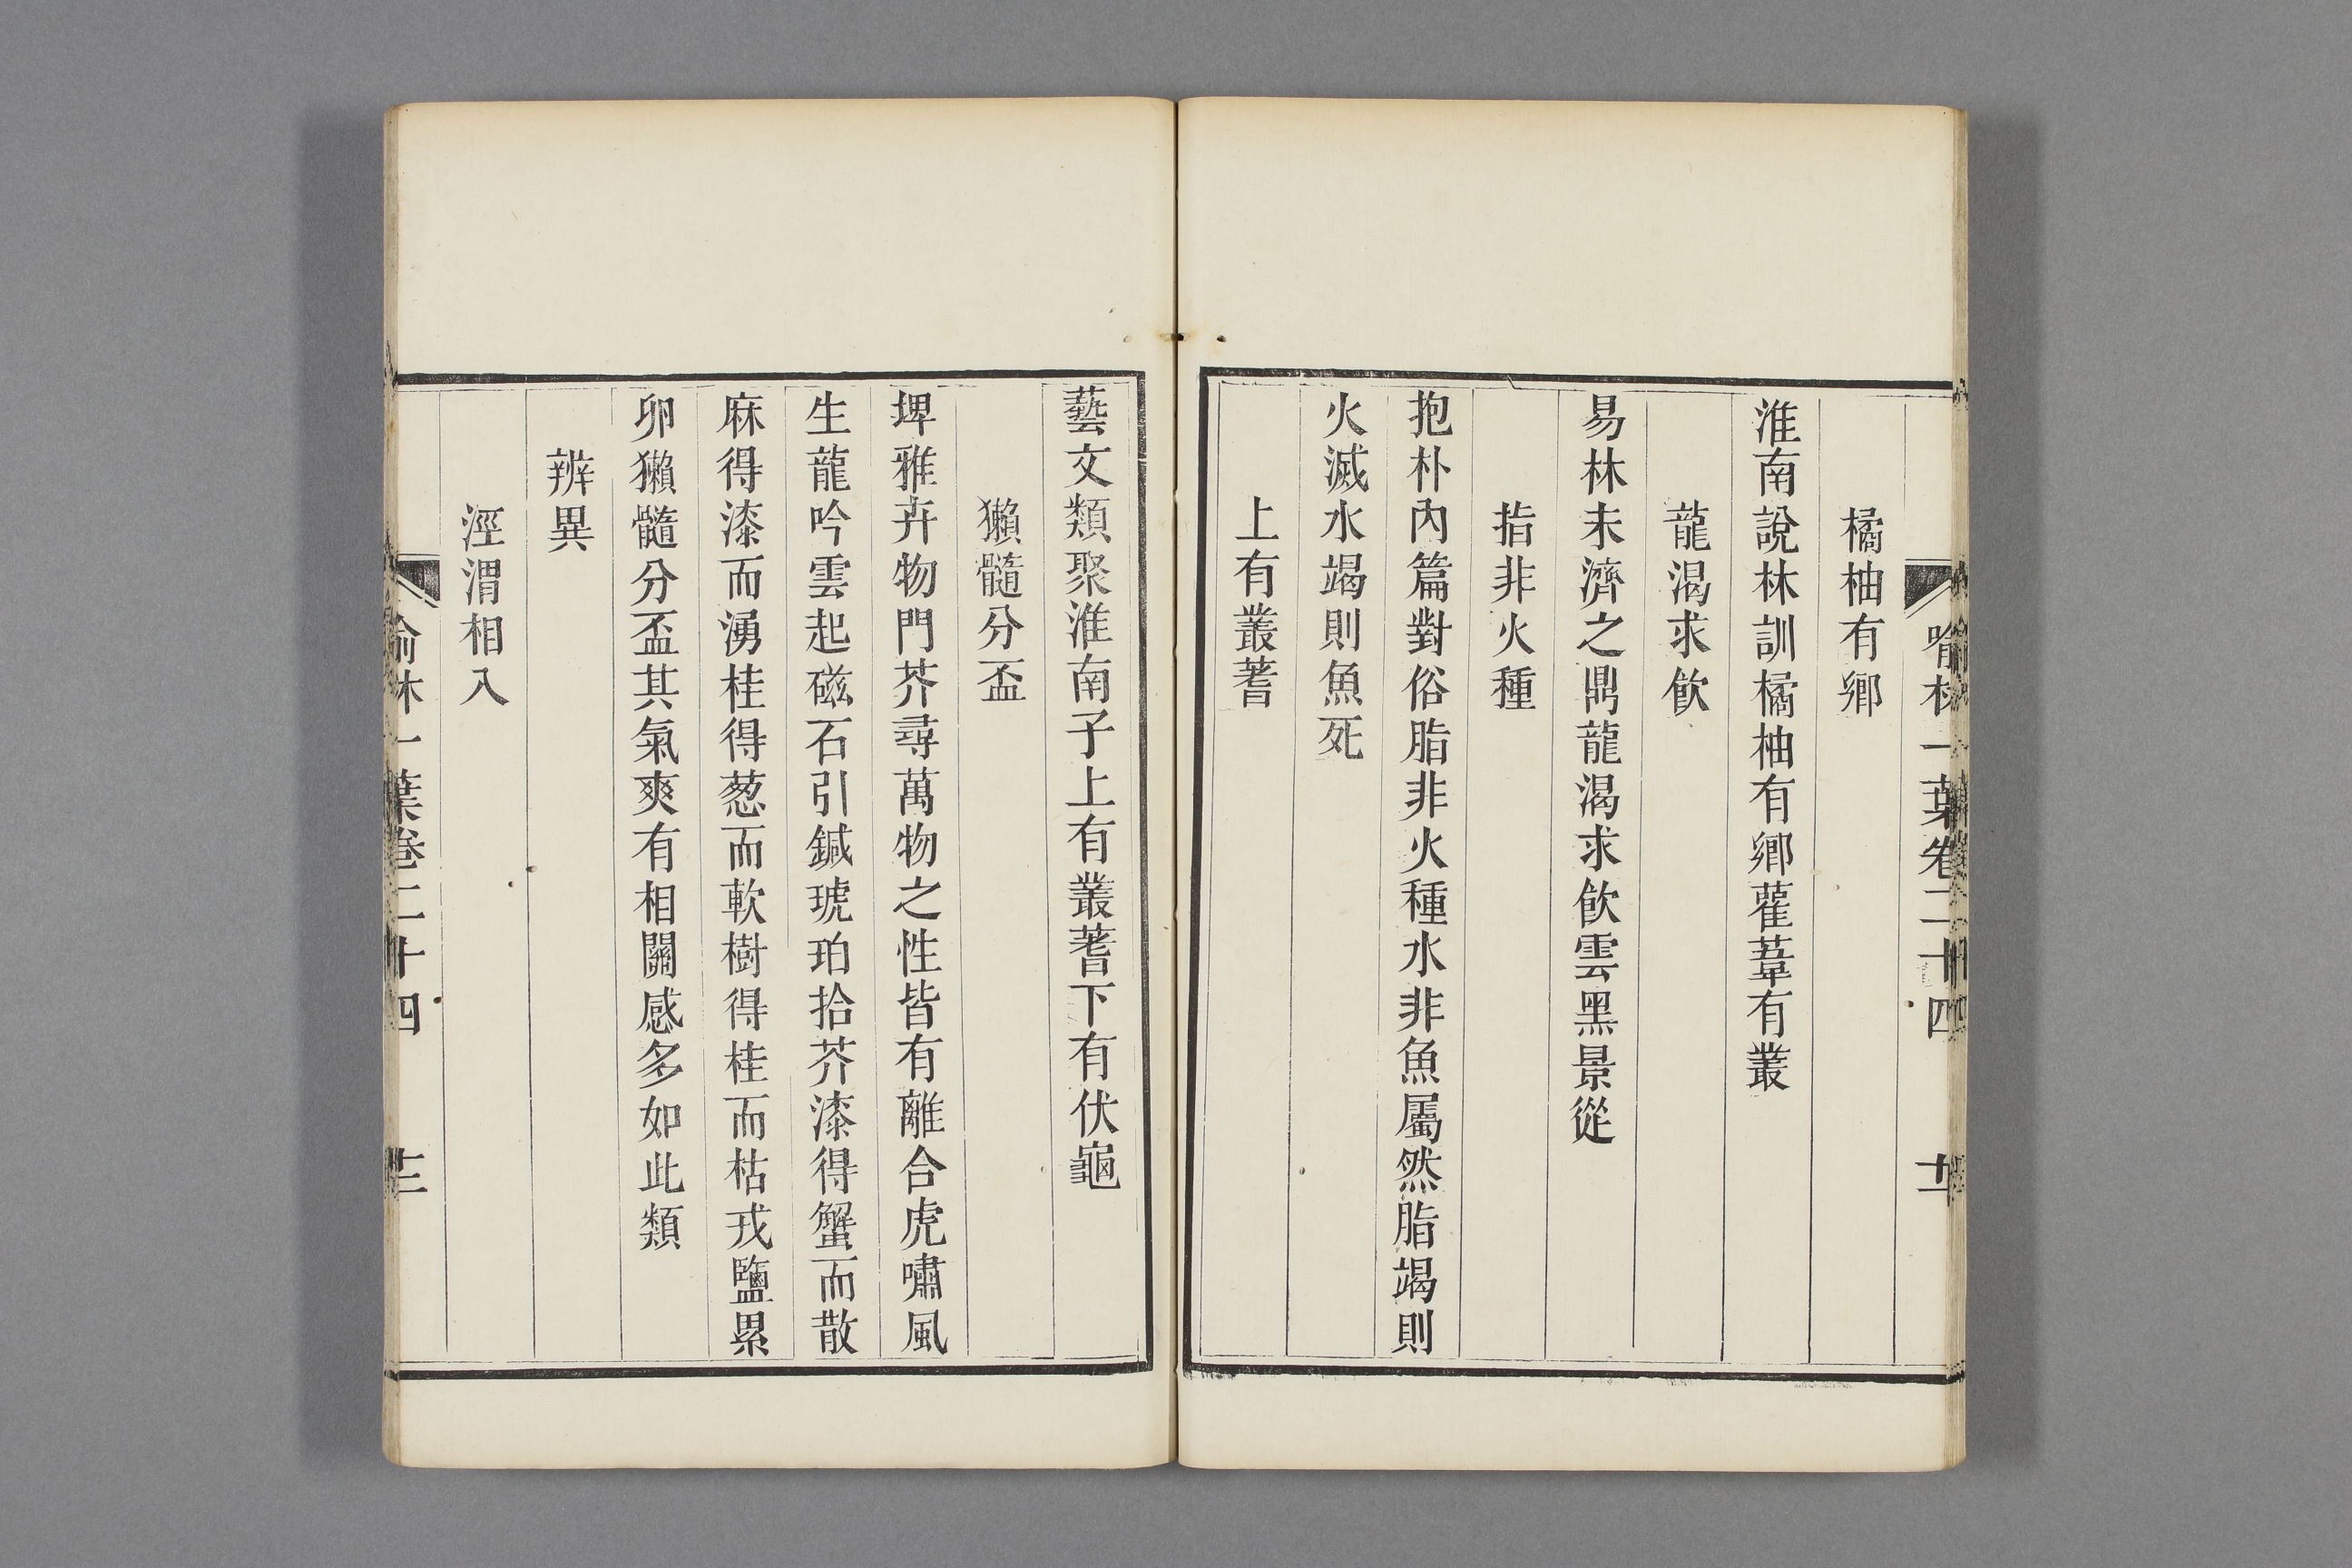 喻林一葉卷二十四
橘柚有鄉
淮南說林訓橘柚有鄉雚葦有叢
龍渴求飲
易林未濟之鼎龍渴求飲雲黑景從
指非火種
抱朴內篇對俗脂非火種水非魚屬然脂竭則
火滅水竭則魚死
上有叢蓍
藝文類聚淮南子上有叢蓍下有伏龜
獺髓分盃
埤雅卉物門芥尋萬物之性皆有離合虎嘯風
生龍吟雲起磁石引鍼琥珀拾芥漆得蟹而散
麻得漆而湧桂得葱而軟樹得桂而枯戎鹽累
卵獺髓分盃其氣爽有相關感多如此類
辨異
涇渭相入
喻林一葉卷二十四